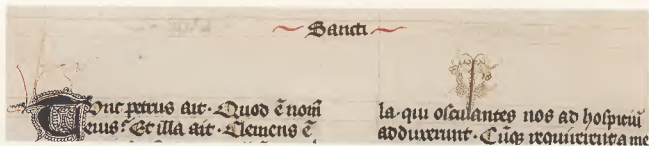 Sancti
Tunc petrus ait· Quod ē nom̄
eius? Et illa ait· Clemens ē
la· qui osculantes nos ad hospiciū
adduxerunt· Cūq̄ requirieruta me